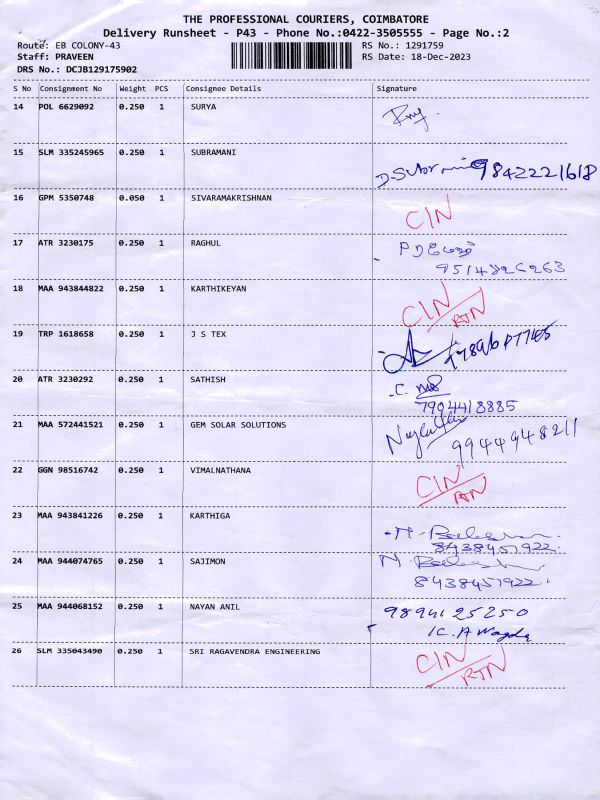 THE PROFESSIONAL COURIERS, COIMBATORE
Delivery Runsheet - P43 - Phone No.:0422-3505555 - Page No.:2
Route: EB COLONY-43 RS No.: 1291759
Staff: PRAVEEN RS Date: 18-Dec-2023
DRS No.: DCJB129175902
S No Consignment No Weight PCS Consignee Details Signature
14 POL 6629092 0.250 1 SURYA
15 SLM 335245965 0.250 1 SUBRAMANI
9842221618
16 GPM 5350748 0.050 1 SIVARAMAKRISHNAN
CIN
17 ATR 3230175 0.250 1 RAGHUL
18 MAA 943844822 0.250 1 KARTHIKEYAN
CIN
RTN
19 TRP 1618658 0.250 1 J S TEX
20 ATR 3230292 0.250 1 SATHISH
7904418885
21 MAA 572441521 0.250 1 GEM SOLAR SOLUTIONS
9944948211
22 GGN 98516742 0.250 1 VIMALNATHANA
CIN
RTN
23 MAA 943841226 0.250 1 KARTHIGA
8438457922
24 MAA 944074765 0.250 1 SAJIMON
8438457922
25 MAA 944068152 0.250 1 NAYAN ANIL 9894125250
26 SLM 335043490 0.250 1 SRI RAGAVENDRA ENGINEERING
CIN
RTN